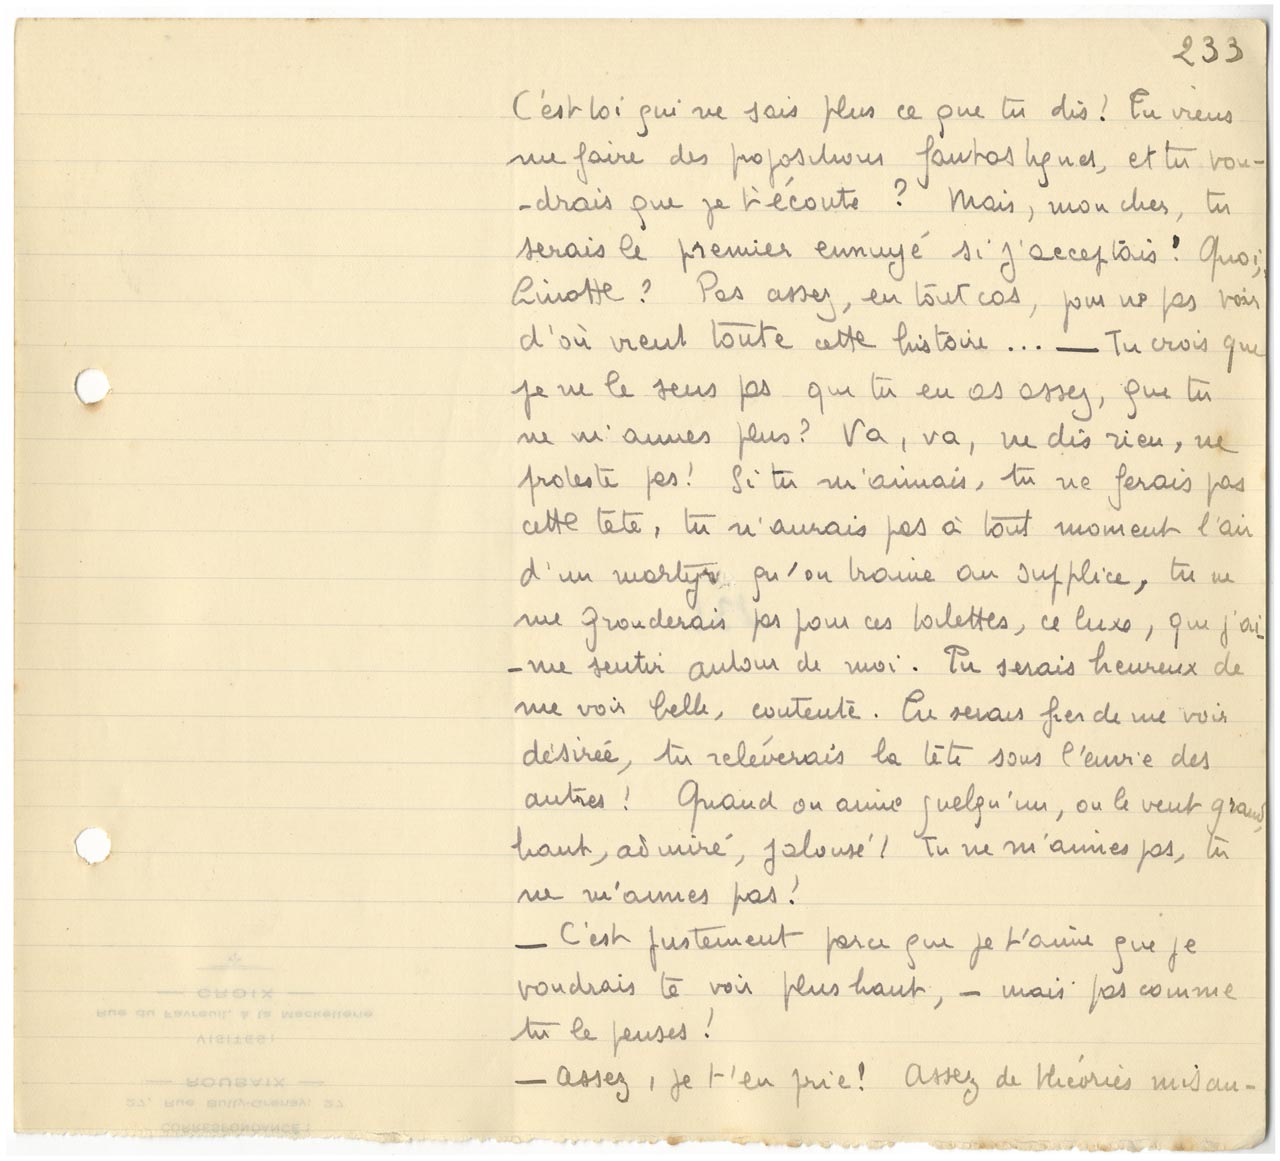 233
C'est toi qui ne sais plus ce que tu dis! Tu viens
me faire des propositions fantastiques, et tu vou-
-drais que je t'écoute ? Mais, mon cher, tu
serais le premier ennuyé si j'acceptais! Quoi,
Linotte ? Pas assez, en tout cas, pour ne pas voir
d'où vient toute cette histoire ... — Tu crois que
je ne le sens pas que tu en as assez, que tu
ne m'aimes plus? Va, va, ne dis rien, ne
proteste pas! Si tu m'aimais, tu ne ferais pas
cette tête, tu n'aurais pas à tout moment l'air
d'un martyr qu'on traine au supplice, tu ne
me gronderais pas pour ces toilettes, ce luxe, que j'ai-
-me sentir autour de moi. Tu serais heureux de
me voir belle, contente. Tu serais fier de me voir
désirée, tu relèverais la tête sous l'envie des
autres! Quand on aime quelqu'un, on le veut grand,
haut, admiré, jalousé! Tu ne m'aimes pas, tu
ne m'aimes pas!
— C'est justement parce que je t'aime que je
voudrais te voir plus haut, — mais pas comme
tu le penses!
— Assez, je t'en prie! Assez de théories misan-
CROIX
Rue du Favreuil, à la Mackellerie
VISITES:
ROUBAIX
27, Rue Bully-Grenay, 27
CORRESPONDANCE: